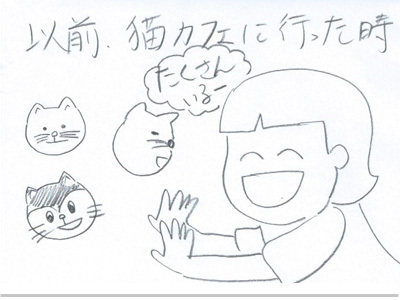 以前、猫カフェに行った時
たくさん
いるー